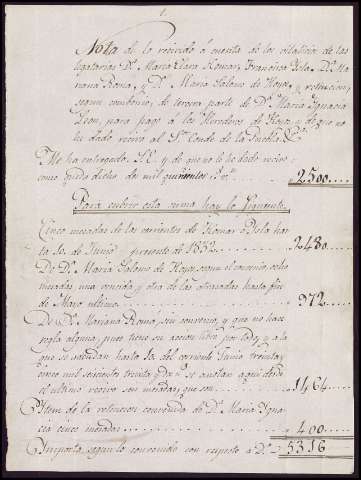 Nota de lo recivido á cuenta de los vitalicios de las
legatarias D.ª Maria Clara Komar, Francisca Yola, D.ª Ma
riana Roma, y D.ª Maria Salome de Hoyo, y retencion,
segun combenio, de tercera parte de D.ª Maria Ygnacia
Leon, para pago á los Herederos de Hoyo, y de que no
he dado recivo al S.or Conde de la Puebla.
Me ha entregado S.E. y de que no le he dado recivo
como queda dicho dos mil quinientos r.s v.n 2500
Para cubrir esta suma hay lo Siguiente.
Cinco mesadas de los corrientes de Komar e Yola has
ta 10. de Junio presente de 1832 2480
De D.ª Maria Salome de Hoyo, segun el convenio, ocho
mesadas una vencida y otra de las atrasadas hasta fin
de Mayo ultimo 972
De D.ª Mariana Roma, sin convenio, y que no hace
regla alguna, pues tiene su accion libre por todo, y á la
que se adeudan hasta 10. del corriente Junio treinta y
cinco mil seiscientos treinta se anotan aqui desde
el ultimo recivo seis mesadas, que son 1464
Ytem de la retencion convenida de D.ª Maria Ygna
cia cinco mesadas 400
Ymporta segun lo convenido con respecto á D.ª 5316